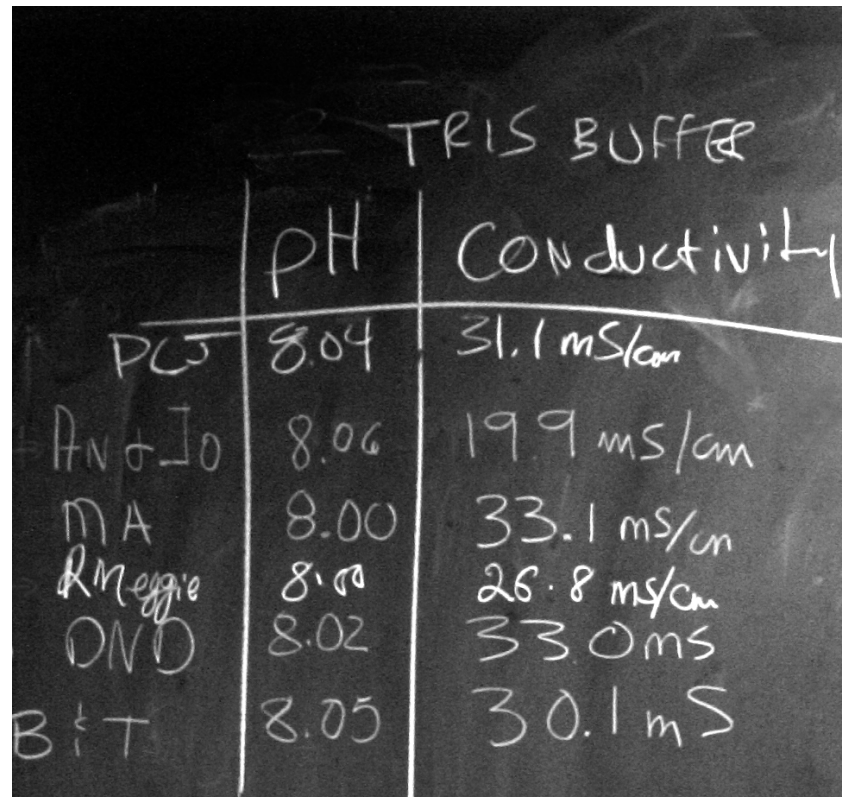 TRIS BUFFER
pH CONductivity
PCJ 8.04 31.1 mS/cm
AN & JO 8.06 19.9 mS/cm
MA 8.00 33.1 mS/cm
RMeggie 8.00 26.8 mS/cm
DND 8.02 33.0 mS
B & T 8.05 30.1 mS